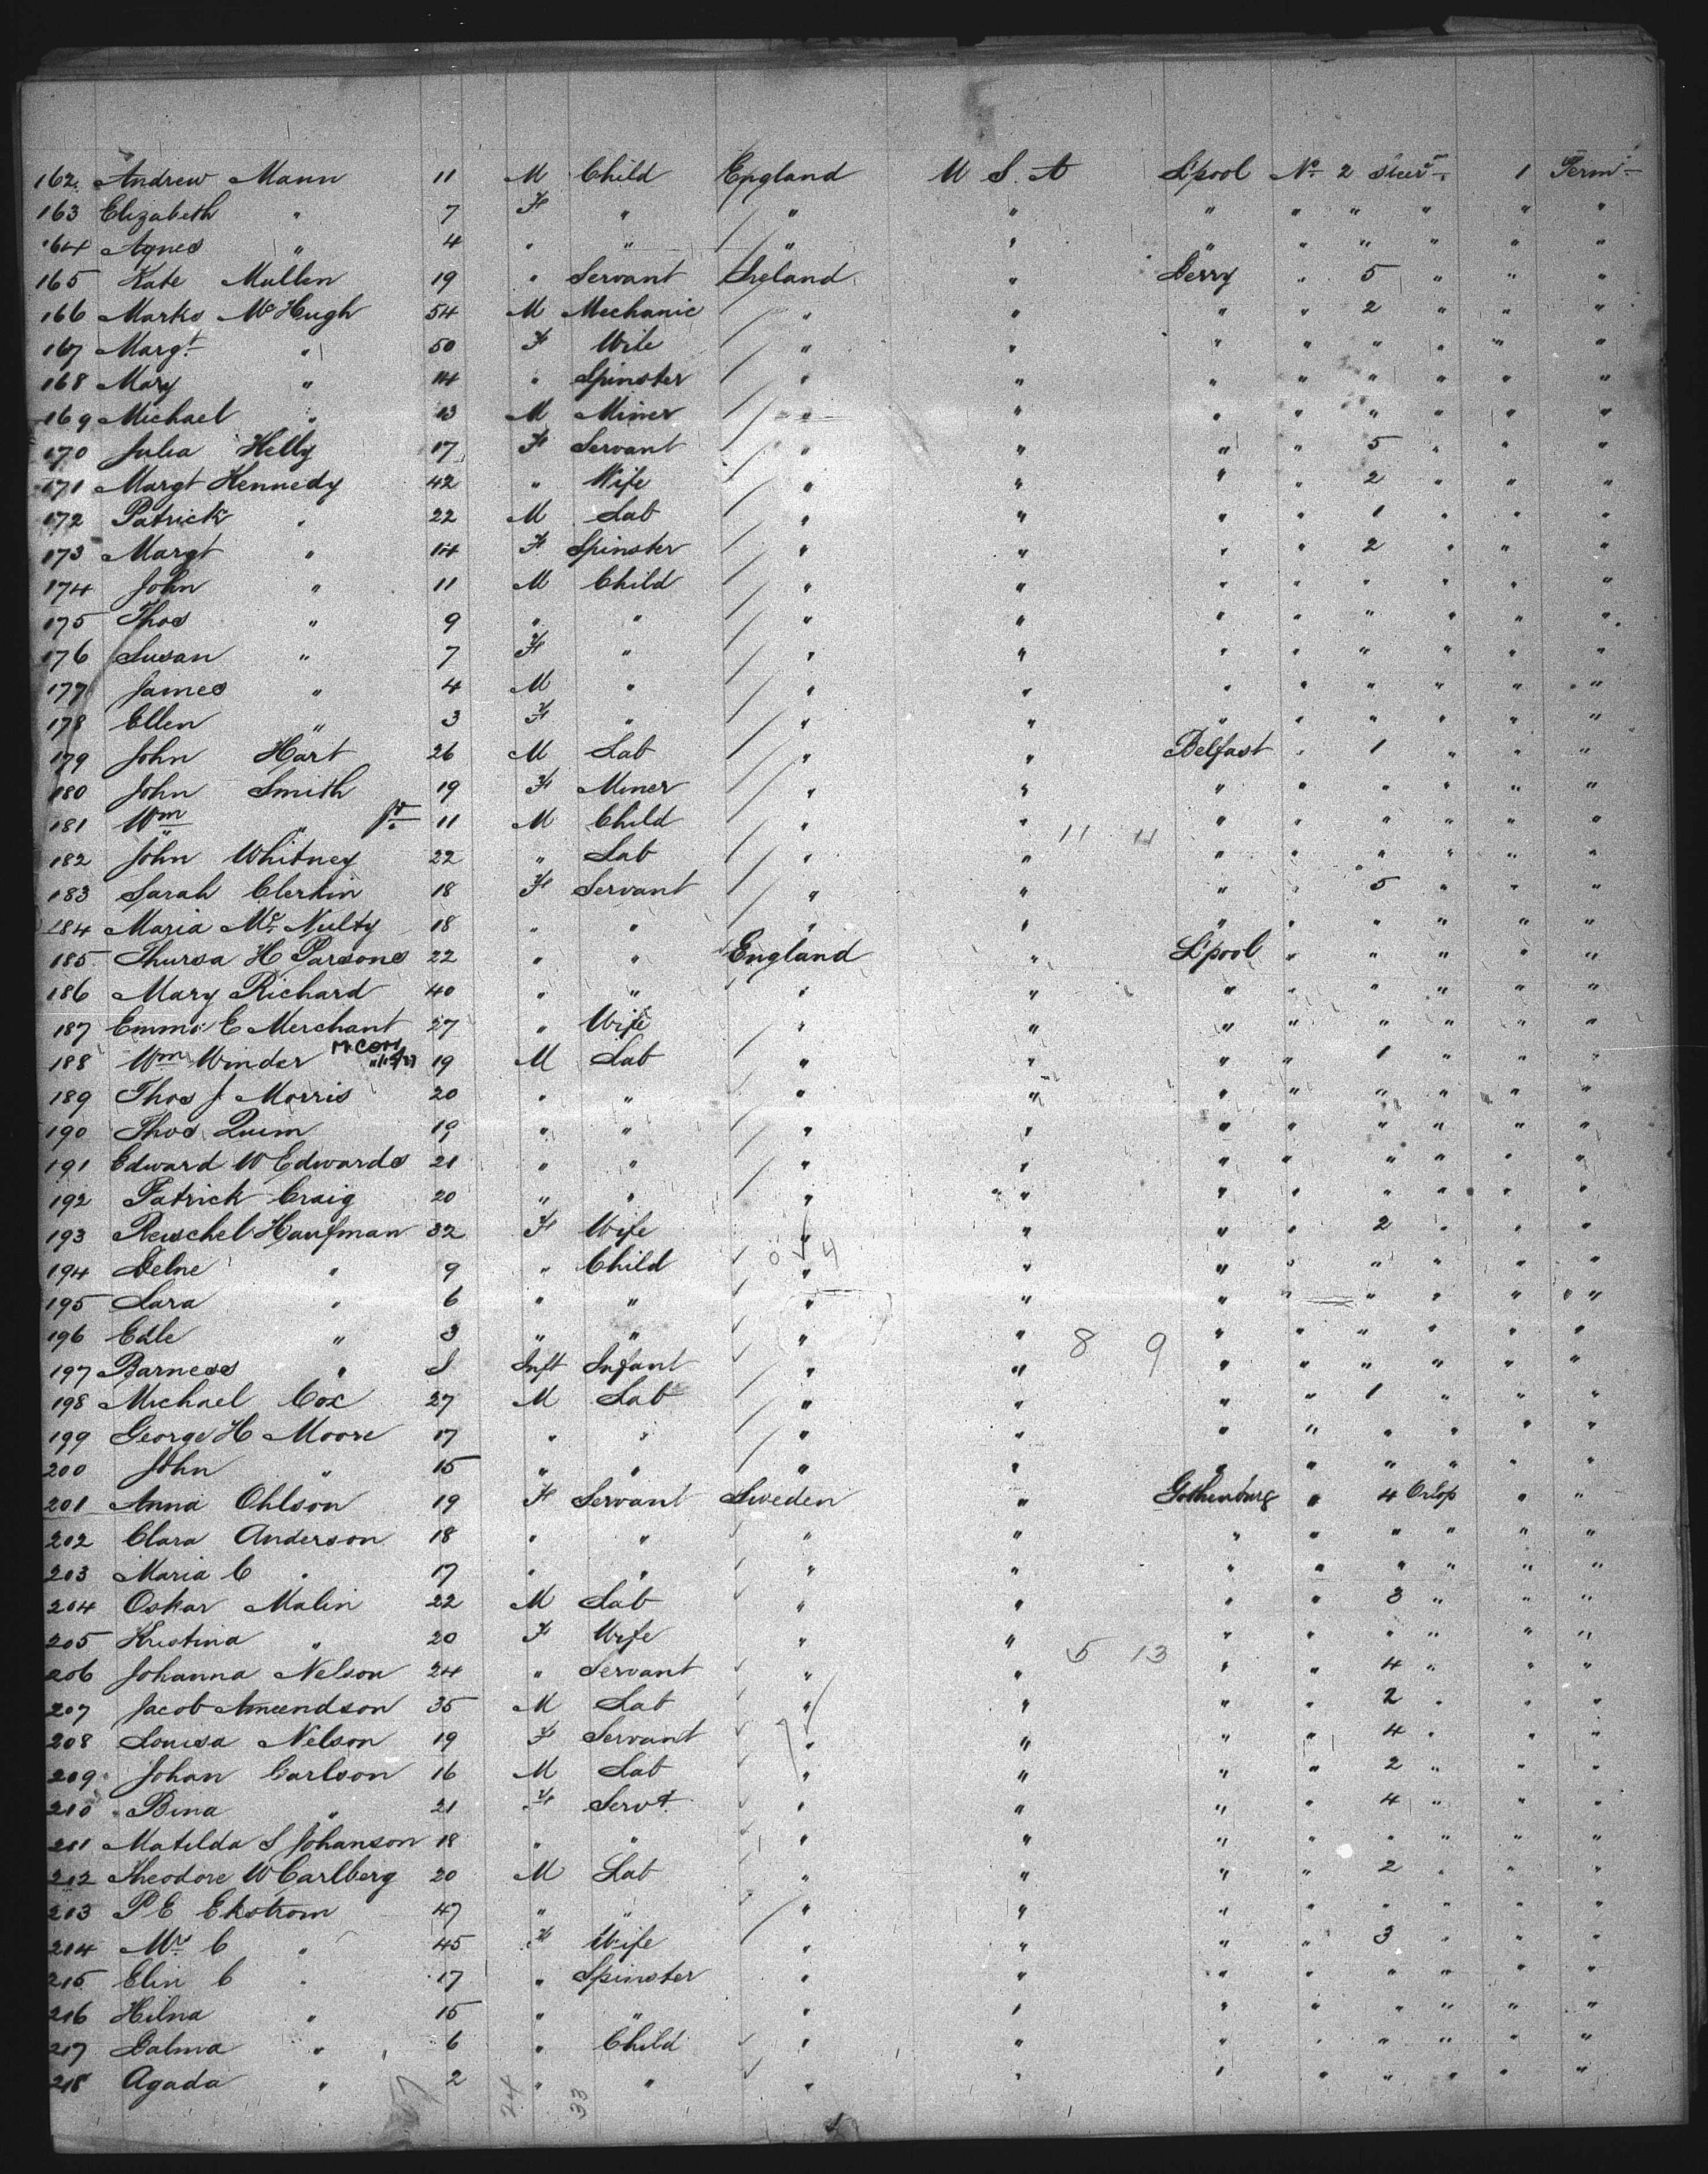 162. Andrew Mann 11 M Child England U S. A L'pool No 2 Steer 1 Perm
163 Elizabeth " 7 F " " " " " " " " "
164 Agnes " 4 " " " " " " " " " "
165 Kate Mullen 19 " Servant Ireland " Derry " 5 " " "
166 Marks McHugh 54 M Mechanic " " " " 2 " " "
167 Margt " 50 F Wife " " " " " " " "
168 Mary " 14 " Spinster " " " " " " " "
169 Michael " 13 M Miner " " " " " " " "
170 Julia Helly 17 F Servant " " " " 5 " " "
171 Margt Kennedy 42 " Wife " " " " 2 " " "
172 Patrick " 22 M Lab " " " " 1 " " "
173 Margt " 14 F Spinster " " " " 2 " " "
174 John " 11 M Child " " " " " " " "
175 Thos " 9 " " " " " " " " " "
176 Susan " 7 F " " " " " " " " "
177 James " 4 M " " " " " " " " "
178 Ellen " 3 F " " " " " " " " "
179 John Hart 26 M Lab " " Belfast " 1 " " "
180 John Smith 19 F Miner " " " " " " " "
181 Wm " Jr 11 M Child " " 11 11 " " " " " "
182 John Whitney 22 " Lab " " " " " " " "
183 Sarah Clerkin 18 F Servant " " " " 5 " " "
184 Maria McNulty 18 " " " " " " " " " "
185 Thursa H Parsons 22 " " England " L'pool " " " " "
186 Mary Richard 40 " " " " " " " " " "
187 Emma E Merchant 27 " Wife " " " " " " " "
188 Wm Winder 19 M Lab " " " " 1 " " "
189 Thos J Morris 20 " " " " " " " " " "
190 Thos Quim 19 " " " " " " " " " "
191 Edward W Edwards 21 " " " " " " " " " "
192 Patrick Craig 20 " " " " " " " " " "
193 Reuschel Haufman 32 F Wife " " " " 2 " " "
194 Delne " 9 " Child 0 4 " " " " " " " "
195 Sara " 6 " " " " " " " " " "
196 Edle " 3 " " " " 8 9 " " " " " "
197 Barness " Inft Infant " " " " " " " "
198 Michael Cox 27 M Lab " " " " 1 " " "
199 George H Moore 17 " " " " " " " " " "
200 John " 15 " " " " " " " " " "
201 Anna Ohlson 19 F Servant Sweden " Gothenburg " 4 Orlop " "
202 Clara Anderson 18 " " " " " " " " " "
203 Maria C " 17 " " " " " " " " " "
204 Oskar Malin 22 M Lab " " " " 3 " " "
205 Kristina " 20 F Wife " " 5 13 " " " " " "
206 Johanna Nelson 24 " Servant " " " " 4 " " "
207 Jacob Amundson 35 M Lab " " " " 2 " " "
208 Louisa Nelson 19 F Servant " " " " 4 " " "
209 Johan Carlson 16 M Lab " " " " 2 " " "
210 Bina " 21 F Servt. " " " " 4 " " "
211 Matilda S Johanson 18 " " " " " " " " " "
212 Theodore W Carlberg 20 M Lab " " " " 2 " " "
213 P E Ekstrom 47 " " " " " " " " " "
214 Mrs C " 45 F Wife " " " " 3 " " "
215 Elin C " 17 " Spinster " " " " " " " "
216 Hilna " 15 " " " " " " " " " "
217 Dalma " 6 " Child " " " " " " " "
218 Agada " 2 " " " " " " " " " "
57 24 33